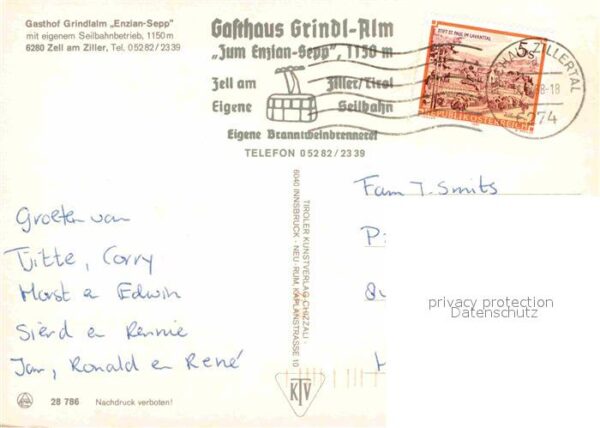 Gasthof Grindlalm „Enzian-Sepp"
mit eigenem Seilbahnbetrieb, 1150 m
6280 Zell am Ziller, Tel. 05282/2339
Gasthaus Grindl-Alm
„Zum Enzian-Sepp", 1150 m
Zell am Ziller/Tirol
Eigene Seilbahn
Eigene Branntweinbrennerei
TELEFON 05282/2339
STIFT ST. PAUL IM LAVANTTAL
5
REPUBLIK ÖSTERREICH
ZILLERTAL
8-18
6274
Groeten van
Tjitte, Corry
Horst en Edwin
Sierd en Rennie
Jan, Ronald en René
TIROLER KUNSTVERLAG CHIZZALI
6040 INNSBRUCK - NEU-RUM, KAPLANSTRASSE 10
Fam J. Smits
privacy protection
Datenschutz
28 786 Nachdruck verboten!
KTV